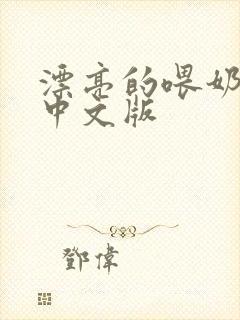 漂亮的喂奶
中文版
鄧偉